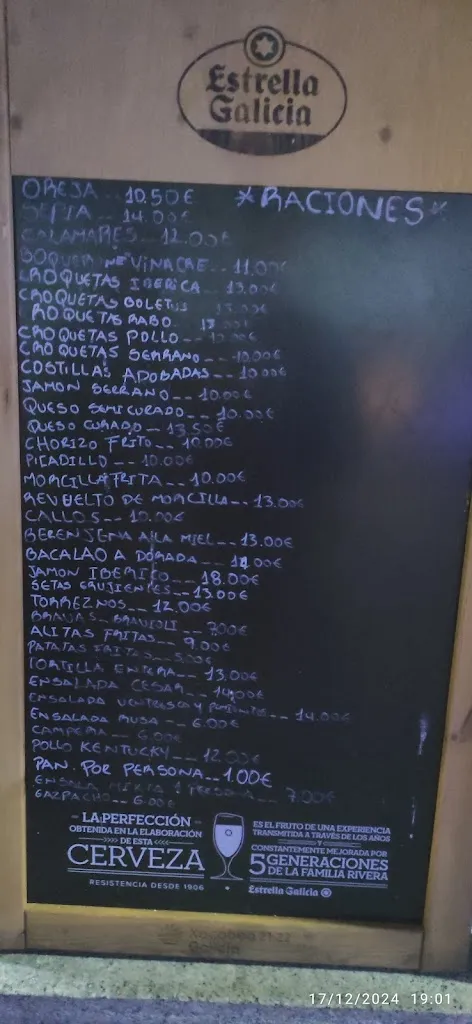 Estrella
Galicia
OREJA -- 10.50€ *RACIONES*
SEPIA -- 14.00€
CALAMARES -- 12.00€
VINAGRE -- 11.00€
CROQUETAS IBERICA -- 13.00€
CROQUETAS BOLETUS 13.00€
ROQUETAS RABO
CROQUETAS POLLO -- 10.00€
CROQUETAS SERRANO -- 10.00€
COSTILLAS ADOBADAS -- 10.00€
JAMON SERRANO -- 10.00€
QUESO SEMICURADO -- 10.00€
QUESO CURADO -- 13.50€
CHORIZO FRITO -- 10.00€
PICADILLO -- 10.00€
MORCILLA FRITA -- 10.00€
REVUELTO DE MORCILLA -- 13.00€
CALLOS -- 10.00€
BERENJENA A LA MIEL -- 13.00€
BACALAO A DORADA --
JAMON IBERICO -- 18.00€
SETAS CRUJIENTES -- 13.00€
TORREZNOS -- 12.00€
BRAVAS - BRAVIOLI -- 7.00€
ALITAS FRITAS -- 9.00€
PATATAS FRITAS -- 5.00€
TORTILLA ENTERA -- 13.00€
ENSALADA CESAR -- 14.00€
ENSALADA VENTRESCA y -- 14.00€
ENSALADA RUSA -- 6.00€
CAMPERA -- 6.00€
POLLO KENTUCKY -- 12.00€
PAN. POR PERSONA -- 1.00€
MIXTA 1 PERSONA -- 7.00€
GAZPACHO -- 6.00€
- LA PERFECCIÓN -
OBTENIDA EN LA ELABORACIÓN
DE ESTA
CERVEZA
RESISTENCIA DESDE 1906
ES EL FRUTO DE UNA EXPERIENCIA
TRANSMITIDA A TRAVÉS DE LOS AÑOS
Y
CONSTANTEMENTE MEJORADA POR
5 GENERACIONES
DE LA FAMILIA RIVERA
Estrella Galicia
Xacobeo 21·22
Galicia
17/12/2024 19:01